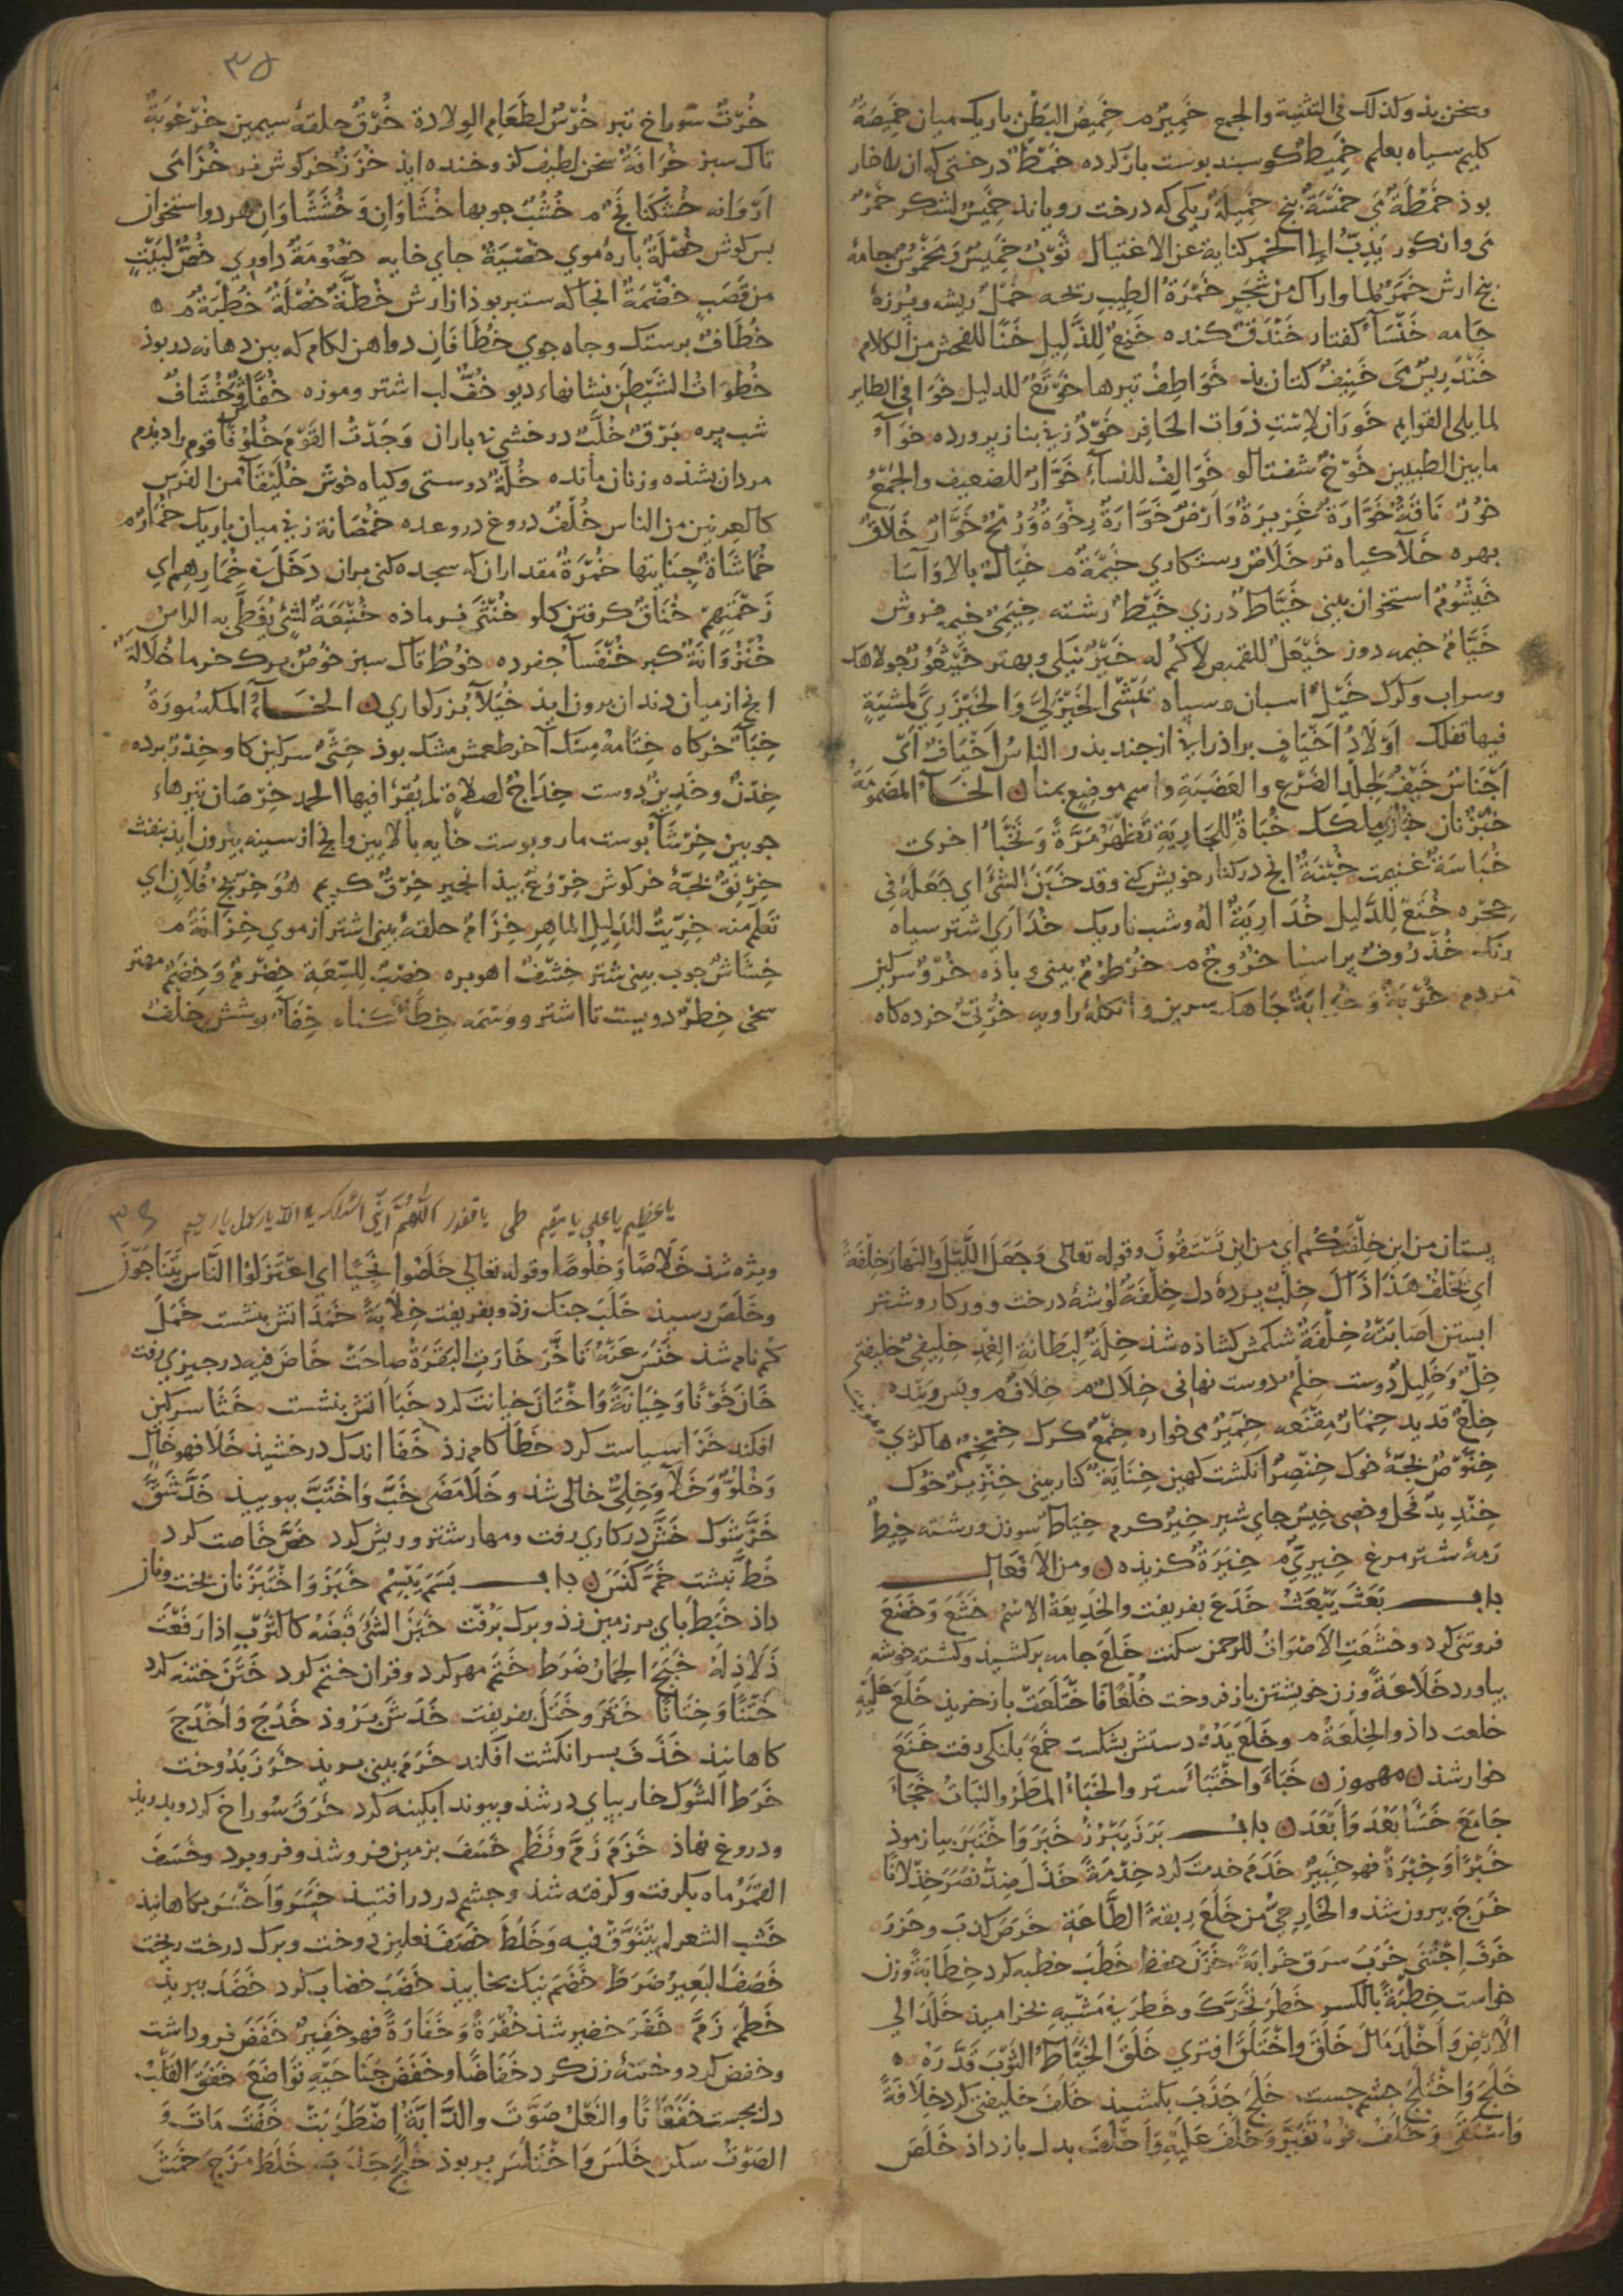 وسخن بذ وكذلك فى التثنية والجمع خَمِيرٌ م خَمِيصُ البَطْنِ باريك ميان خَمِيصَةٌ
كليم سياه بعلم خَمِيطٌ كوسبند بوست باز كرده خَمْطٌ درختى كه ان را خار
بوذ خَمْطَةٌ مَى خَمْسَةٌ بنج خَمِيلَةٌ ريكى كه درخت روياند خَمِيسٌ لشكر خَمْرٌ
مَى وانكور يَدِبُّ الخمر كناية عن الاغتيال ثَوْبٌ خَمِيسٌ وَمَخْمُوسٌ جامهٔ
بنج ارش خَمَرٌ لما واراك من شَجَرٍ خَمْرَةُ الطِيبِ رتحه خَمْلٌ ريشه وپرزهٔ
جامه خَنْسَآءُ كفتار خَنْدَقٌ كنده خَنِعٌ لِلذَّلِيلِ خَنًا للفحش من الكلام
خَنْدَرِيسٌ مَى خَنِيفٌ كتان بذ خَوَاطِفُ تيرها خَوْتَعٌ للدليل خَوَافِى الطاير
لما يلى القوايم خَوَرَانٌ لاِسْتِ ذَوَات الحافِر خَوْدٌ زنى بناز پرورده خَوَآءٌ
ما بين الطبيين خَوْخٌ شفتالو خَوَالِفُ للنسآءِ خَوَّارٌ للضعيف والجَمْعُ
خُورٌ نَاقَةٌ خَوَّارَةٌ غَزِيرَةٌ وَاَرْضٌ خَوَّارَةٌ رِخْوَةٌ وَرُمْحٌ خَوَّارٌ خَلَاقٌ
بهره خَلَآ كياه تر خَلَاصٌ رستكاري خَيْمَةٌ م خَيَالٌ بالا وآسَا
خَيْشُومٌ استخوان بينى خَيَّاطٌ درزي خَيْطٌ رشته خِيَمِىٌّ خيمه فروش
خَيَّامٌ خيمه دوز خَيْعَلٌ للقميص لا كُمَّ له خَيْرٌ نيكى وبهتر خَيْتَعُورٌ جولاهك
وسراب وكرك خَيْلٌ اسبان وسپاه تَمَشَّى الخَيْزَلِيَّ وَالخَيْزَرِيَّ لمشيَةٍ
فيها تفكك اَوْلَادُ اَخْيَافٍ براذران از چند پدر الناسُ اَخْيَافٌ اَىْ
اَجْنَاسٌ خَيْفٌ لِجِلدِ الضَرْعِ والغَضَبَةِ واسم موضِعٍ بمنا الخَآءُ المَضمُومَةُ
خُبْزٌ نان خُبَاةٌ لِلجَارِيَةِ تَظْهَرُ مَرَّةً وَتَخْبَأُ اخرى
خُبَاسَةٌ غنيمت خُبْنَةٌ انج در كنار خويش كنى وقد خَبَنَ الشَئَ اي جَعَلَهُ فِى
حِجْره خُتَعٌ لِلدَّلِيل خُدَارِيَةٌ اله وشب تاريك خُدَارِيٌّ اشتر سياه
رنك خُذْرُوفٌ پراسيا خُرُوجٌ م خُرْطُومٌ بينى وباذه خُرْؤٌ سركين
مردم خُرْبَةٌ وَخُرَابَةٌ جاهك سرين وانكله راويه خُرْثِىٌّ خرده كاه
٣٥
خُرْتٌ سوراخ تبر خُرْسٌ لطَعَامِ الوِلادة خُرْقٌ حلقهٔ سيمين خُرْعُوبَةٌ
تاك سبز خُرَافَةٌ سخن لطيف كز وخنده ايذ خُزَزٌ خركوش نر خُزَامَى
اَرْوَانه خُشْكَنَانَجٌ م خُشُبٌ جوبها خُشَّاوَانِ وَخُشَشَاوَانِ هر دو استخوان
بس كوش خُصْلَةٌ بارهٔ موي خُصْيَةٌ جاي خايه خُصُومَةٌ داوري خُصٌّ لِبَيْتٍ
من قَصَبٍ خُضُمَّةٌ انجاكه ستبر بوذ از ارش خُطَّةٌ خُصْلَةٌ خُطْبَةٌ م
خُطَّافٌ برستك وجاه جوي خُطَّافَانِ دو اهن لكام كه بين دهانه در بوذ
خُطوَاتُ الشَيْطَنِ نشانهاء ديو خُفٌّ لب اشتر وموزه خُفَّاشٌ خُشَّافٌ
شب پره بَرْقٌ خُلَّبٌ درخشى نه باران وَجَدْتُ القَوْمَ خُلُوْفًا قوم را ديدم
مردان بشذه وزنان مانده خُلَّةٌ دوستى وكياه خوش خُلَيْقَآءُ من الفَرَسِ
كالعرنين من الناس خُلْفٌ دروغ در وعده خُمْصَانَةٌ زنى ميان باريك خُمَارٌ م
خُمَاشَاةٌ جنايتها خُمْرَةٌ مقدار ان كه سجده كنى بران دَخَلَ فى خُمَارِهِم اي
زَحْمَتِهِمْ خُنَاقٌ كرفتن كلو خُنْثَى نر وماذه خُنْبُعَةٌ لِشَئٍ يُغَطَّى به الراسُ
خُنْزُوَانَةٌ كِبر خُنْفَسَآءُ جفرده خُوْطٌ تاك سبز خُوْصٌ برك خرما خُلَالَةٌ
انج از ميان دندان برون ايذ خُيَلَآءُ بزركواري الخَآءُ المكسُورَةُ
خِبَآءٌ خركاه خِتَامُهُ مِسْكٌ آخر طعمش مشك بوذ خِثْىٌ سركين كاو خِدْرٌ برده
خِدْنٌ وخَدِينٌ دوست خِدَاجٌ لصلاةٍ لم يُقرَا فيها الحمد خِرْصَان تيرهاء
جوبين خِرْشَآءُ بوست مار وبوست خايه بالايين وانج از سينه بيرون ايذ بنفث
خِرْنِقٌ بجهٔ خركوش خِرْوَعٌ بيذ انجير خِرْقٌ كريم هُوَ خِرِّيجُ فُلَانٍ اي
تَعَلَّمَ منه خِرِّيتٌ للدَلِيلِ الماهِرِ خِزَامٌ حلقهٔ بينى اشتر از موي خِزَانَةٌ م
خِشَاشٌ جوب بينى شتر خِشْفٌ اهو بره خِصْبٌ لِلسَعَةِ خِضْرِمٌ وَخِضَمٌّ مهتر
سخى خِطْرٌ دويست تا اشتر ووَسْمَه خِطَأٌ كناه خِفَآءٌ پوشش خِلْفُ
پستان من اين خِلْفَتُكُم اي من اين تَسْتَقُونَ وقوله تعالى وَجَعَلَ اللَّيْلَ وَالنهارَ خِلْفَةً
اي يَخلُفُ هَذَا ذَاكَ خِلْبٌ پردهٔ دل خِلْفَةٌ كوشهٔ درخت وور كار وشتر
ابستن اَصَابَتْهُ خِلْفَةٌ شكمش كشاذه شذ خِلَّةٌ لِبِطَانَةِ الغِمْدِ خِلِّيفَى خليفتى
خِلٌّ وَخَلِيلٌ دوست خِلْمٌ دوست نهانى خِلَالٌ م خِلَافٌ م وپس وبيد
خِلْعٌ قديد خِمَارٌ مِقنَعه خِمِّيرٌ مى خواره خِمْعٌ كرك خِمْخِمٌ هاكژي
خِنَّوْصٌ بجهٔ خوك خِنْصِرٌ انكشت كهين خِنَّابَةٌ كنار بينى خِنْزِيرٌ خوك
خِنْذِيذٌ فحل وخصى خِيْسٌ جاي شير خِيْرٌ كرم خِيَاطٌ سوزن ورشته خِيطٌ
رمهٔ شتر مرغ خِيْرِيٌّ م خِيَرَةٌ كزيذه ومن الاَفعَالِ
باب بَعَثَ يَبْعَثُ خَدَعَ بفريفت والخَدِيعَةُ الاِسْم خَشَعَ وَخَضَعَ
فروتنى كرد وخشَعَتِ الاَصْوَاتُ للرحمن سكنت خَلَعَ جامه بركشيد وكشته خوشه
بياورد خَلَاعَةً وزن خويشتن باز فروخت خُلْعًا فَاخْتَلَعَتْ باز خريد خَلَعَ عَلَيْهِ
خلعت داذ والخِلعَةُ م وخَلَعَ يَدَهُ دستش بشكست خَمَعَ بلنكى رفت خَنَعَ
خوار شذ مهموز خَبَاءَ وَاخْتَبَأَ ستر والخَبَاءُ المَطَرُ والنبَاتُ خَجَأَ
جَامَعَ خَسَأَ بَعُدَ وَاَبْعَدَ باب بَرَزَ يَبْرُزُ خَبَرَ وَاخْتَبَرَ بيازموذ
خُبْرًا وَخِبْرَةً فهو خَبِيرٌ خَدَمَ خدمت كرد خِدْمَةً خَذَلَ ضِدّ نَصَرَ خِذْلَانًا
خَرَجَ بيرون شذ والخَارِجِىُّ من خَلَعَ رِبقةَ الطَّاعَةِ خَرَصَ كذب وحزر
خَرَفَ اجْتَنَى خَرَبَ سرق خَرَابَةً خَزَنَ حفظ خَطَبَ خطبه كرد خِطَابَةً وزن
خواست خِطْبَةً بالكسر خَطَرَ تَحَرَّكَ وخَطَرَ فى مَشْيِهِ بخراميذ خَلَدَ الى
الاَرْضِ وَاَخْلَدَ مَالَ خَلَقَ واخْتَلَقَ افترى خَلَقَ الخَيَّاطُ الثوْبَ قَدَّرَهُ
خَلَجَ وَاخْتَلَجَ چشم جست خَلَجَ جَذَبَ بكشيذ خَلَفَ خليفتى كرد خِلَافَةً
وَاسْتَقَى وَخَلَفَ فُوْهُ تَغَيَّرَ وَخَلَفَ عَلَيْهِ وَاَخْلَفَ بدل باز داذ خَلَصَ
يا عظيم يا على يا مقيم يا غفور اَللَّهُمَّ اِنِّى اسئلك
٣٦
ويژه شذ خَلَاصًا وَخُلُوصًا وقوله تعالى خَلَصُوا نَجِيًّا اي اعْتَزَلوُا النَّاسَ يَتَنَاجَوْنَ
وخَلَصَ رسيد خَلَبَ جنك زذ وبفريفت خِلَابَةً خَمَدَ اتش بنشست خَمَلَ
كم نام شذ خَنَسَ عَنْهُ تَاخَّرَ خَارَتِ البَقَرَةُ صاحَتْ خَاضَ فيه در چيزي رفت
خَانَ خَوْنًا وَخِيَانَةً وَاخْتَانَ خيانت كرد خَبَا اتش بنشست خَثَا سركين
افكند خَزَا سياست كرد خَطَا كام زذ خَفَا اندك درخشيذ خَلَا فهو خَالٍ
وَخُلُوٌّ وَخَلَآءٌ وَخِلْىٌ خالى شذ وخَلَا مَضَى خَبَّ وَاخْتَبَّ ببوييد خَدَّ شَقَّ
خَزَّ شوك خَشَّ در كاري رفت ومهار شتر وريش كرد خَصَّ خاصت كرد
خَطَّ نبشت خَمَّ كَنَسَ باب بَسَمَ يَبْسِمُ خَبَزَ وَاخْتَبَزَ نان پخت ونان
داذ خَبَطَ پاي بر زمين زذ وبرك برُفت خَبَنَ الشَئَ قَبَضَهُ كالثَوْبِ اِذَا رَفَعْتَ
ذَلَاذِلَهُ خَبَجَ الحِمَارُ ضَرَطَ خَتَمَ مهر كرد وقران ختم كرد خَتَنَ ختنه كرد
خَتْنًا وَخِتَانًا خَتَرَ وخَتَلَ بفريفت خَدَشَ بَرْوذ خَدَجَ وَاَخْدَجَ
كاهانيذ خَذَفَ بسر انكشت افكند خَرَمَ بينى ببريذ خَرَزَ بَدُوخت
خَرَطَ الشوك خار بپاي در شذ وپيوند ابكينه كرد خَرَقَ سُوراخ كرد وبدريذ
ودروغ نهاذ خَزَمَ زَمَّ وَنَظَمَ خَسَفَ بزمين فرو شذ وفرو برد وخَسَفَ
القمَرُ ماه بكرفت وكرفته شذ وچشم در در افتيد خَسَرَ وَاَخْسَرَ بكاهانيذ
خَشَبَ الشعر لم يَتَنَوَّقْ فيه وَخَلَطَ خَصَفَ نعلين دوخت وبرك درخت ريخت
خَصَفَ البَعِيرُ ضَرَطَ خَضَمَ نيك بخاييد خَضَبَ خضاب كرد خَضَدَ ببريذ
خَطَمَ زَمَّ خَفَرَ خفير شذ خُفْرَةً وَخَفَارَةً فهو خَفِيرٌ خَفَضَ فرو داشت
وخفض كرد وختنهٔ زن كرد خَفَاضًا وخَفَضَ جَنَاحَيْهِ تَوَاضَعَ خَفَقَ القَلْبُ
دل بجست خَفَقَانًا والنَعْلُ صَوَّتَ والدَّابَةُ اِضْطَرَبَتْ خَفَتَ مَاتَ وَ
الصَوْتُ سكن خَلَسَ وَاخْتَلَسَ بربوذ خَلَبَ جَذَبَ خَلَطَ مَزَجَ خَمَشَ